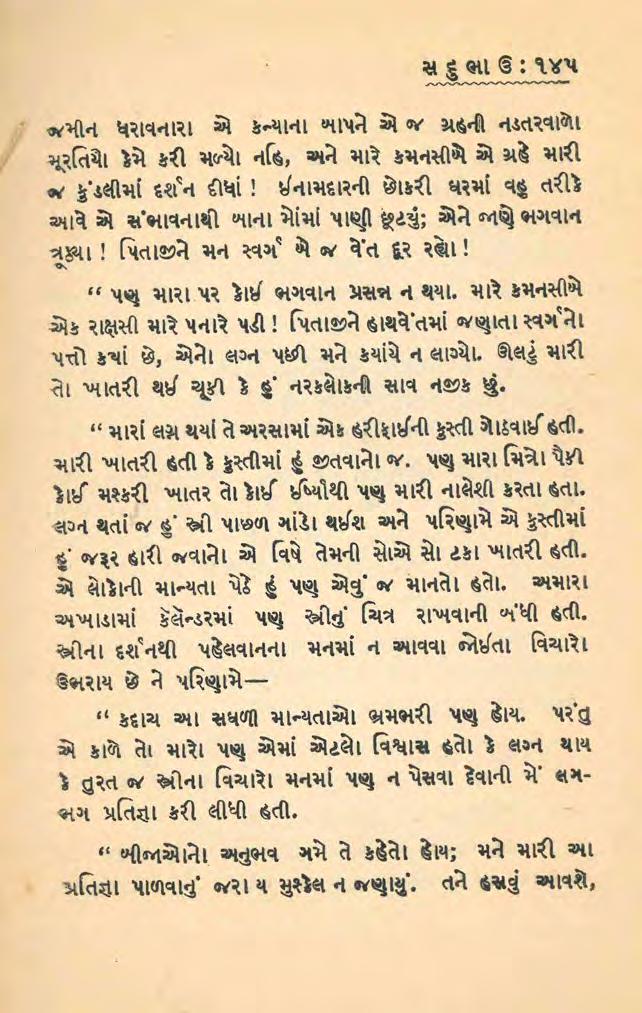 સ દુ ભા ઉ : ૧૪૫
જમીન ધરાવનારા એ કન્યાના બાપને એ જ ગ્રહની નડતરવાળો
મૂરતિયો કેમે કરી મળ્યો નહિ, અને મારે કમનસીબે એ ગ્રહે મારી
જ કુંડલીમાં દર્શન દીધાં ! ઈનામદારની છોકરી ઘરમાં વહુ તરીકે
આવે એ સંભાવનાથી બાના મોંમાં પાણી છૂટયું; એને જાણે ભગવાન
ત્રૂઠ્યા ! પિતાજીને મન સ્વર્ગ બે જ વેંત દૂર રહ્યો !
“ પણ મારા પર કોઈ ભગવાન પ્રસન્ન ન થયા. મારે કમનસીબે
એક રાક્ષસી મારે પનારે પડી ! પિતાજીને હાથવેંતમાં જણાતા સ્વર્ગનો
પત્તો ક્યાં છે, એનો લગ્ન પછી મને કયાંયે ન લાગ્યો. ઊલટું મારી
તો ખાતરી થઈ ચૂકી કે હું નરકલોકની સાવ નજીક છું.
“ મારાં લગ્ન થયાં તે અરસામાં એક હરીફાઈની કુસ્તી ગોઠવાઈ હતી.
મારી ખાતરી હતી કે કુસ્તીમાં હું જીતવાનો જ. પણ મારા મિત્રો પૈકી
કોઈ મશ્કરી ખાતર તો કોઈ ઈર્ષ્યાથી પણ મારી નાલેશી કરતા હતા.
લગ્ન થતાં જ હું સ્ત્રી પાછળ ગાંડો થઈશ અને પરિણામે એ કુસ્તીમાં
હું જરૂર હારી જવાનો એ વિષે તેમની સોએ સો ટકા ખાતરી હતી.
એ લોકોની માન્યતા પેઠે હું પણ એવું જ માનતો હતો. અમારા
અખાડામાં કૅલૅન્ડરમાં પણ સ્ત્રીનું ચિત્ર રાખવાની બંધી હતી.
સ્ત્રીના દર્શનથી પહેલવાનના મનમાં ન આવવા જોઈતા વિચારો
ઉભરાય છે ને પરિણામે—
“ કદાચ આ સઘળી માન્યતાઓ ભ્રમભરી પણ હોય. પરંતુ
એ કાળે તો મારો પણ એમાં એટલો વિશ્વાસ હતો કે લગ્ન થાય
કે તુરત જ સ્ત્રીના વિચારો મનમાં પણ ન પેસવા દેવાની મેં લગ-
ભગ પ્રતિજ્ઞા કરી લીધી હતી.
“ બીજાઓનો અનુભવ ગમે તે કહેતો હોય; મને મારી આ
પ્રતિજ્ઞા પાળવાનું જરા ય મુશ્કેલ ન જણાયું. તને હસવું આવશે,